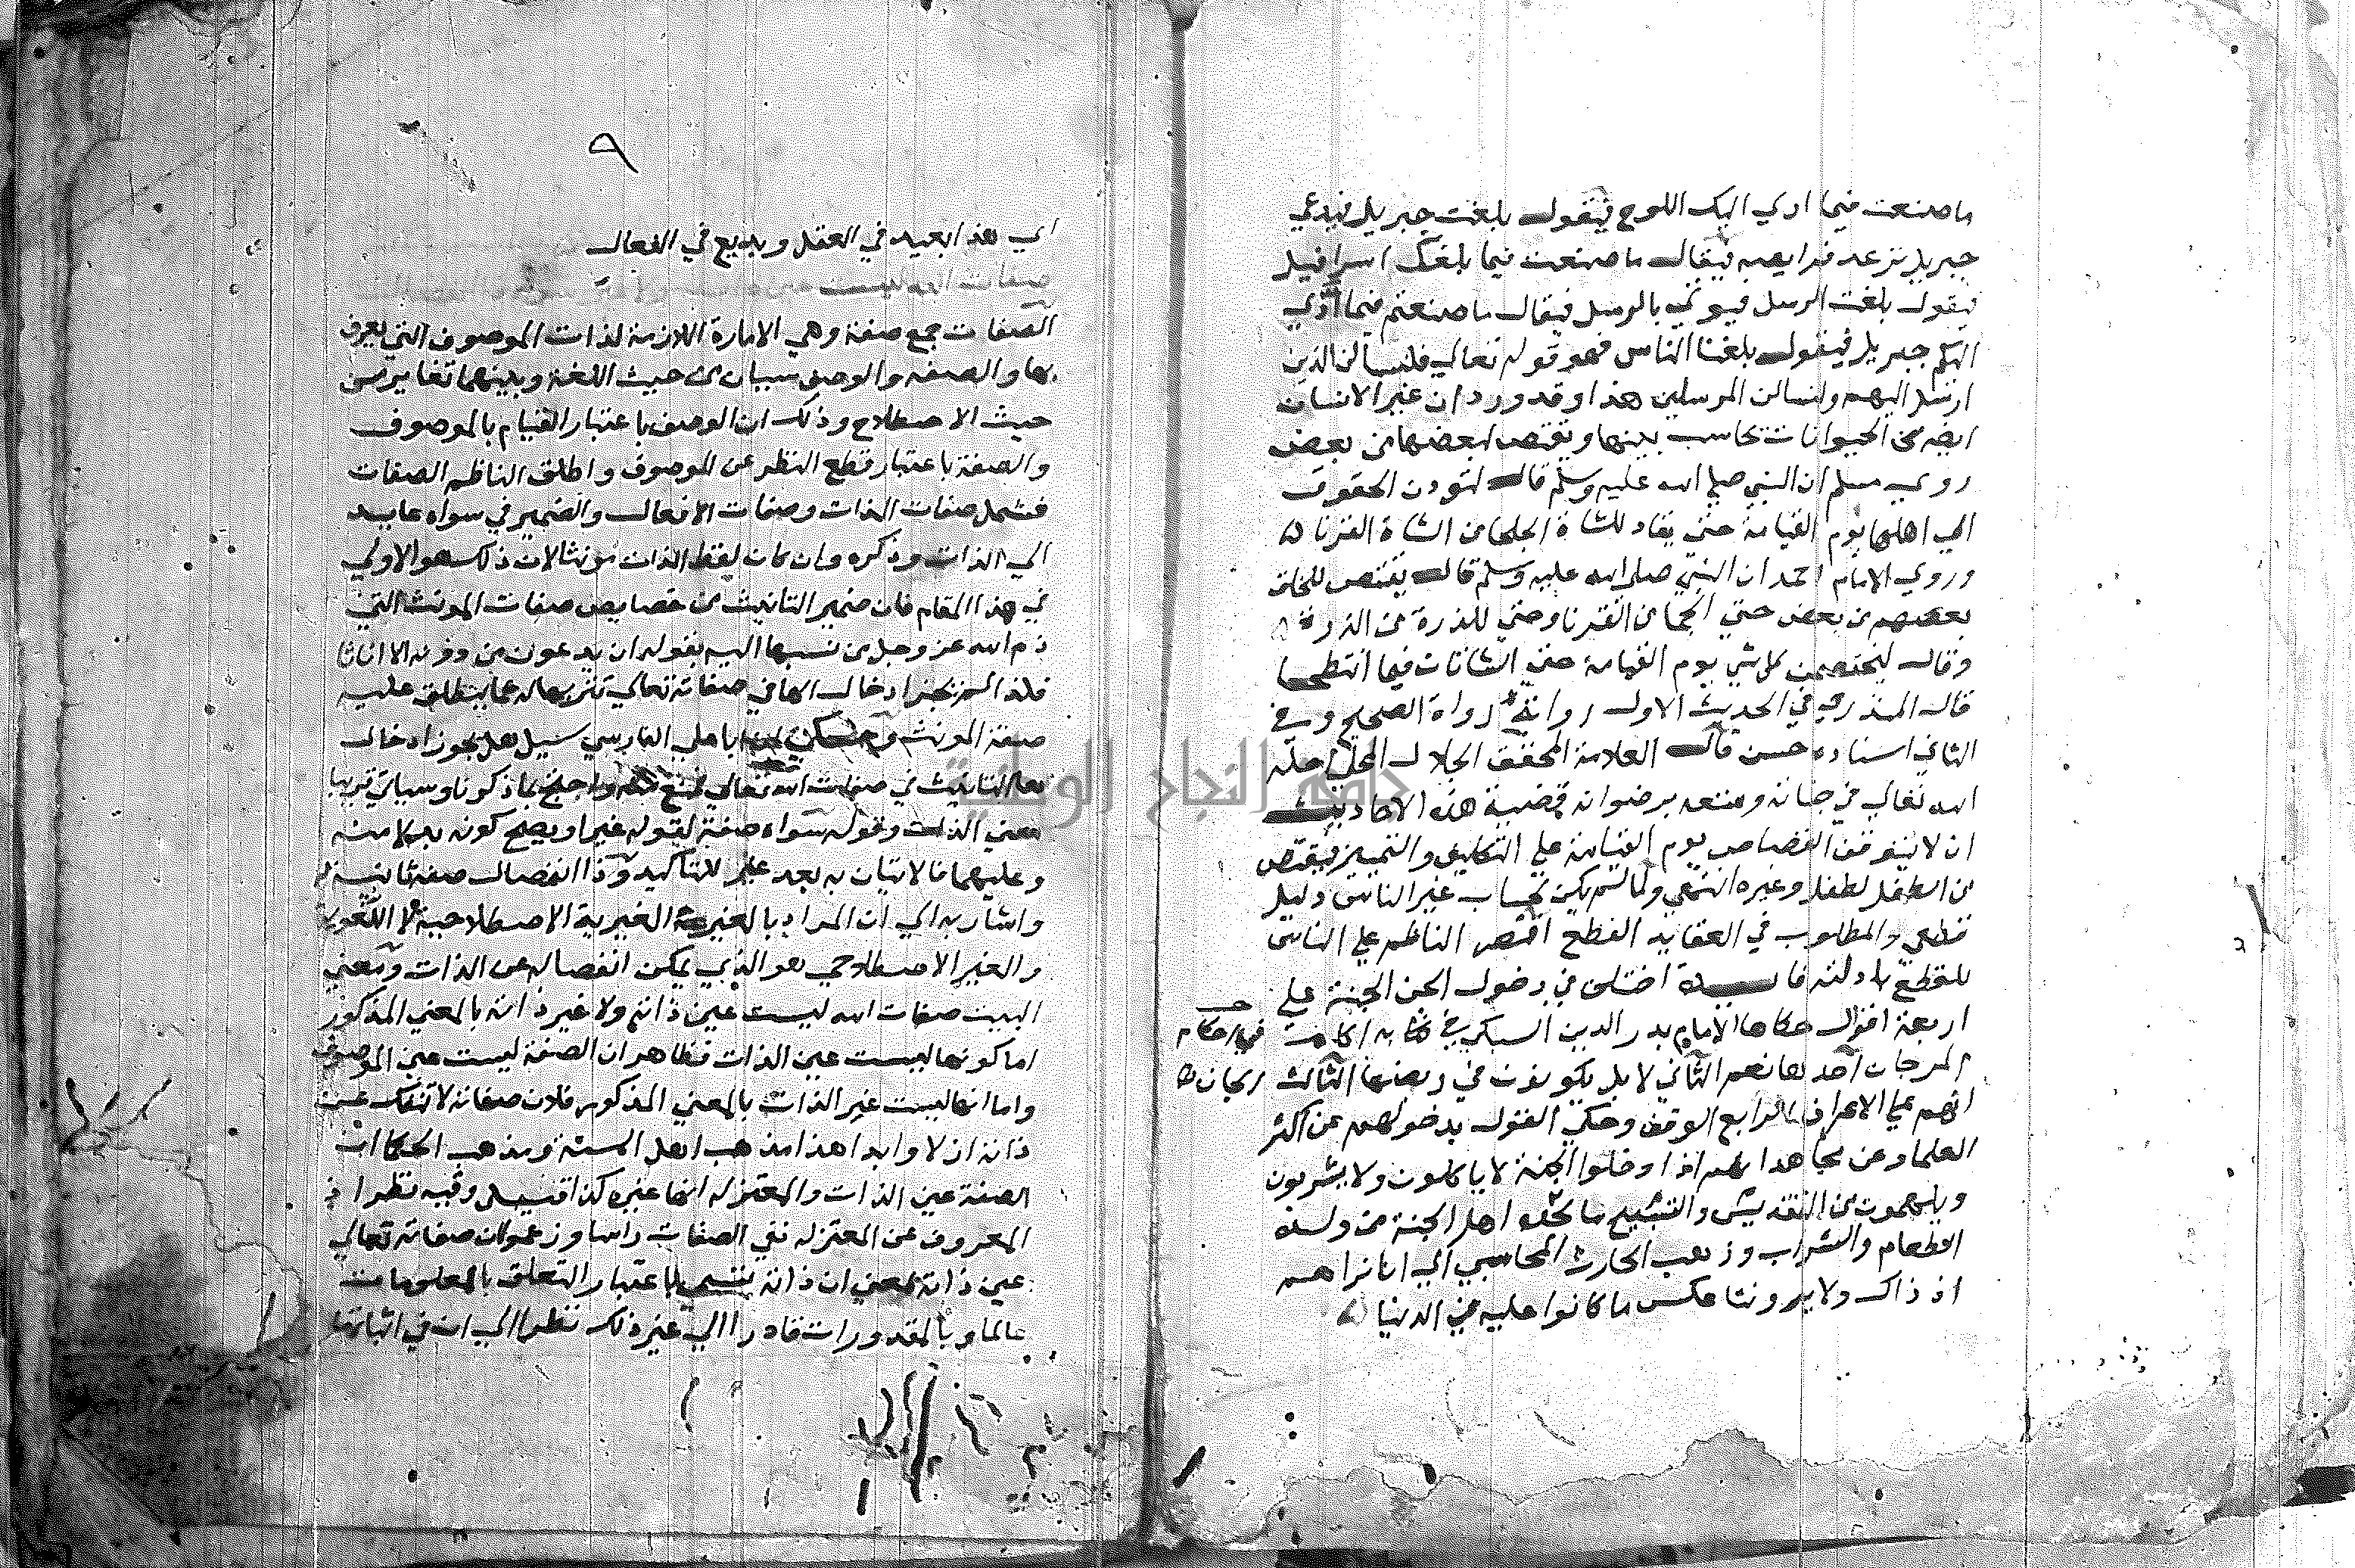 ما صنعت فيما ادي اليك اللوح فيقول بلغت جبريل فيدعي
جبريل ترعد فرايصه فيقال ما صنعت فيما بلغك اسرافيل
فيقول بلغت الرسل فيوتي بالرسل فيقال ما صنعتم فيما ادي
اليكم جبريل فيقول بلغنا الناس فهو قوله تعالي فلنسالن الذين
ارسل اليهم ولنسالن المرسلين هذا وقد ورد ان غير الانسان
ايضا من الحيوانات تحاسب بينها ويقتص لبعضها من بعض
روي مسلم ان النبي صلي الله عليه وسلم قال لتودن الحقوق
الي اهلها يوم القيامة حتي يقاد للشاة الجلحا من الشاة القرنا
وروي الامام احمد ان النبي صلي الله عليه وسلم قال يقتص للخلق
بعضهم من بعض حتي الجما من القرنا وحتي للذرة من الذرة
وقال ليختصمن كل شي يوم القيامة حتي الشاتان فيما انتطحا
قال المنذري في الحديث الاول رواته رواة الصحيح وفي
الثاني اسناده حسن قال العلامة المحقق الجلال المحلي احله
الله تعالي في جنانه ومتعه برضوانه قضية هذه الاحاديث
ان لا يتوقف القصاص يوم القيامة علي التكليف والتمييز فيقتص
من الطفل لطفل وغيره انتهي ولما لم يكن بحساب غير الناس دليل
قطعي والمطلوب في العقايد القطع اقتصر الناظم علي الناس
للقطع بادلته فايدة اختلف في دخول الجن الجنة علي
اربعة اقوال حكاها الامام بدر الدين السبكي في كتابه اكام
المرجان في احكام الجان
احدها نعم الثاني لا بل يكونون في ربضها الثالث
انهم علي الاعراف الرابع الوقف وحكي القول بدخولهم عن اكثر
العلما وعن مجاهد انهم اذا دخلوا الجنة لا ياكلون ولا يشربون
ويلهمون من التقديس والتسبيح ما يجده اهل الجنة من لذة
الطعام والشراب وذهب الحارث المحاسبي الي انا نراهم
اذ ذاك ولا يرونا عكس ما كانوا عليه في الدنيا
٩
اي هذا بعيد في العقل وبديع في الفعال
صفات الله ليست عين
الصفات جمع صفة وهي الامارة اللازمة لذات الموصوف التي يعرف
بها والصفة والوصف سيان من حيث اللغة وبينهما تغاير من
حيث الاصطلاح وذلك ان الوصف باعتبار القيام بالموصوف
والصفة باعتبار قطع النظر عن الموصوف واطلق الناظم الصفات
فشمل صفات الذات وصفات الافعال والضمير في سواه عايد
الي الذات وذكره وان كان لفظ الذات مونثا لان ذلك هو الاولي
في هذا المقام فان ضمير التانيث من خصايص صفات المونث التي
ذم الله عز وجل من نسبها اليه بقوله ان يدعون من دونه الا اناثا
فلذا لم نجز ادخال الها في صفاته تعالي تنزيها له عما ينطلق عليه
صفة المونث ابا علي الفارسي سيل هل يجوز ادخال
ها التانيث في صفات الله تعالي فمنع واحتج بما ذكرنا وسياتي قريبا
معني الذات وقوله سواه صفة لقوله غيرا ويصح كونه بدلا منه
وعليهما فالاتيان به بعد غير للتاكيد وذا انفصال صفة ثانية له
واشار به الي ان المراد بالغيرية الغيرية الاصطلاحية لا اللغوية
والغير الاصطلاحي هو الذي يمكن انفصاله عن الذات ومعني
البيت صفات الله ليست عين ذاته ولا غير ذاته بالمعني المذكور
اما كونها ليست عين الذات فظاهر ان الصفة ليست عين الموصوف
واما انها ليست غير الذات بالمعني المذكور فلان صفاته لا تنفك عن
ذاته ازلا وابدا هذا مذهب اهل السنة ومذهب الحكما ان
الصفة عين الذات والمعتزله انها غيره كذا قيل وفيه نظر اذ
المعروف عن المعتزله نفي الصفات راسا وزعموا ان صفاته تعالي
عين ذاته بمعني ان ذاته يتسمي باعتبار التعلق بالمعلومات
عالما وبالمقدورات قادرا الي غير ذلك نظرا الي ان في اثباتها
جامعة النجاح الوطنية